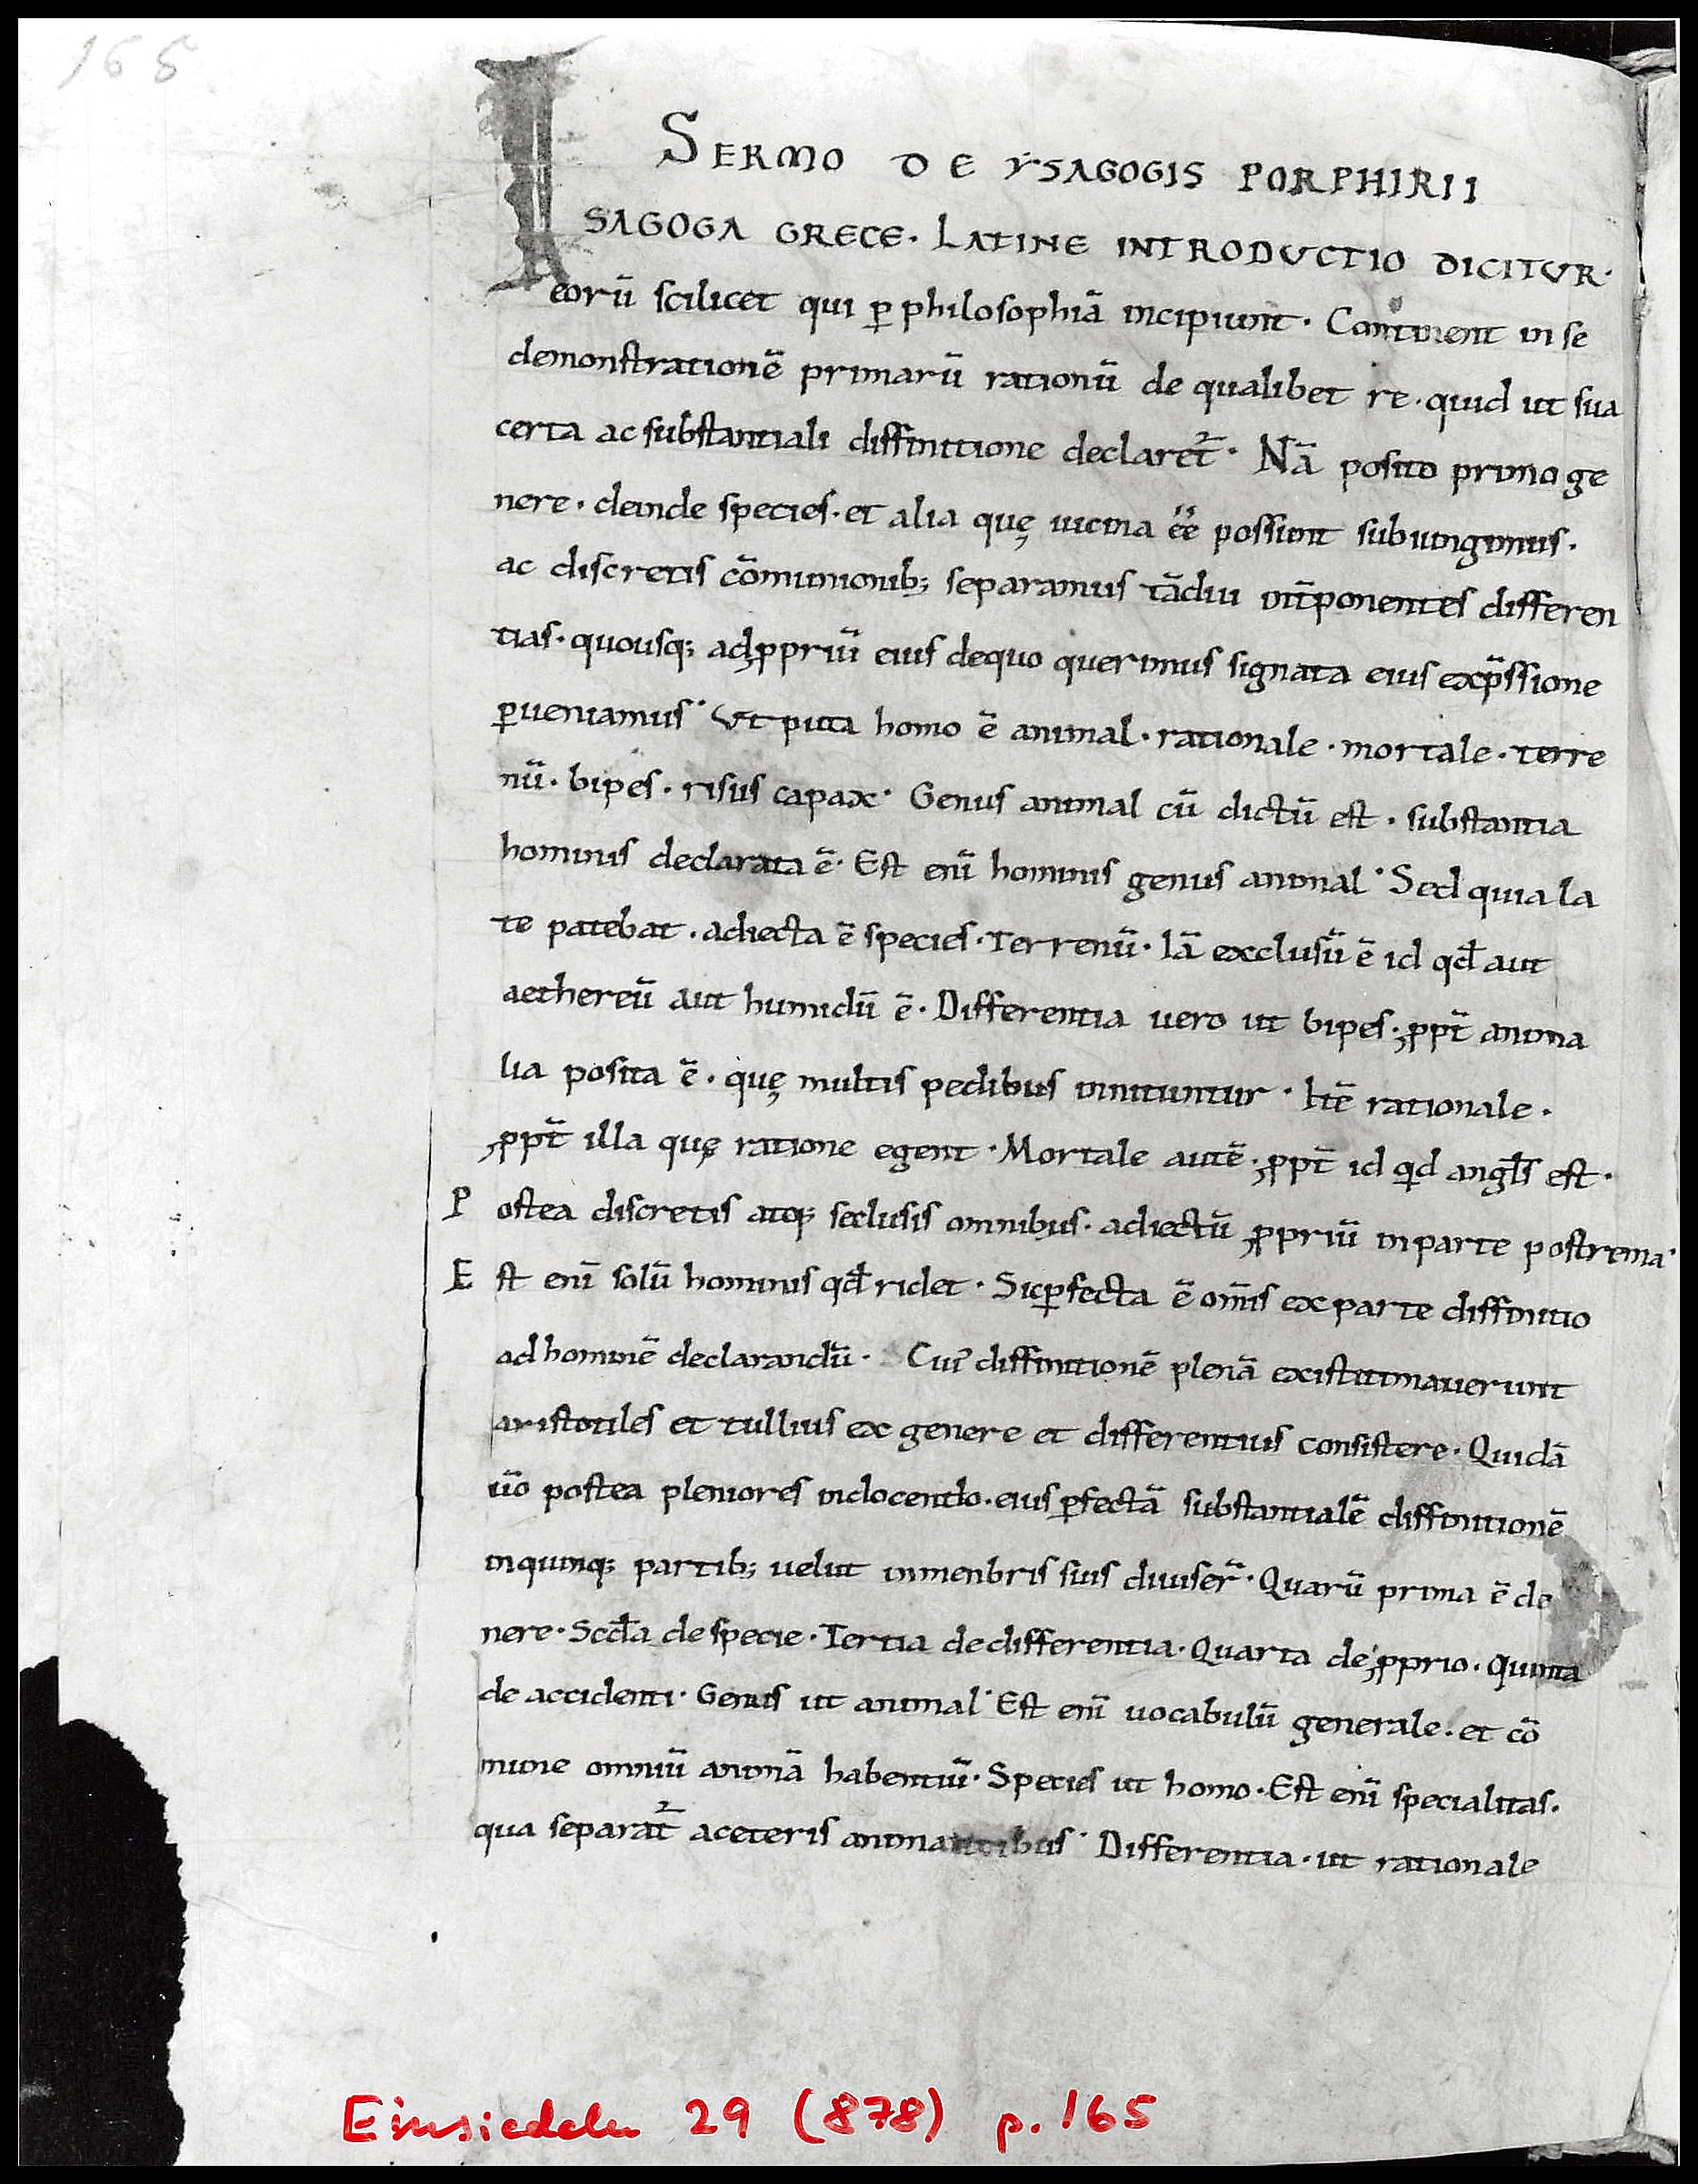 165
SERMO DE YSAGOGIS PORPHIRII
ISAGOGA GRECE. LATINE INTRODUCTIO DICITUR.
eorū scilicet qui p̲ philosophiā incipiunt. Continent in se
demonstrationē primarū rationū de qualibet re. quid ut sua
certa ac substantiali diffinitione declaret̃. Nā posito primo ge
nere. deinde species. et alia quę uicina ēē possunt subiungimus.
ac discretis cōmunionib; separamus tādiu int̄ponentes differen
tias. quousq; ad ꝓpriū eius de quo querimus signata eius exp̄ssione
ꝑueniamus. Ut puta homo ē animal. rationale. mortale. terre
nū. bipes. risus capax. Genus animal cū dictū est. substantia
hominis declarata ē. Est enī hominis genus animal. Sed quia la
te patebat. adiecta ē species. Terrenū. Iā exclusū ē id qđ aut
aethereū aut humidū ē. Differentia uero ut bipes. ꝓpt̄ anima
lia posita ē. quę multis pedibus innituntur. Itē rationale.
ꝓpt̄ illa quę ratione egent. Mortale autē. ꝓpt̄ id qd angl̄s est.
Postea discretis atq; seclusis omnibus. adiectū ꝓpriū in parte postrema.
Est enī solū hominis qđ ridet. Sic ꝑfecta ē om̄is ex parte diffinitio
ad hominē declarandū. Cui᾽ diffinitionē plenā existimauerunt
aristotiles et tullius ex genere et differentiis consistere. Quidā
ūo postea pleniores in docendo. eius ꝑfectā substantialē diffinitionē
in quinq; partib; uelut in menbris suis diuiser̄. Quarū prima ē de
nere. Scđa de specie. Tertia de differentia. Quarta de ꝓprio. Quinta
de accidenti. Genus ut animal. Est enī uocabulū generale. et cō
mune omniū animā habentiū. Species ut homo. Est enī specialitas.
qua separat̃ a ceteris animantibus. Differentia. ut rationale
Einsiedeln 29 (878) p. 165